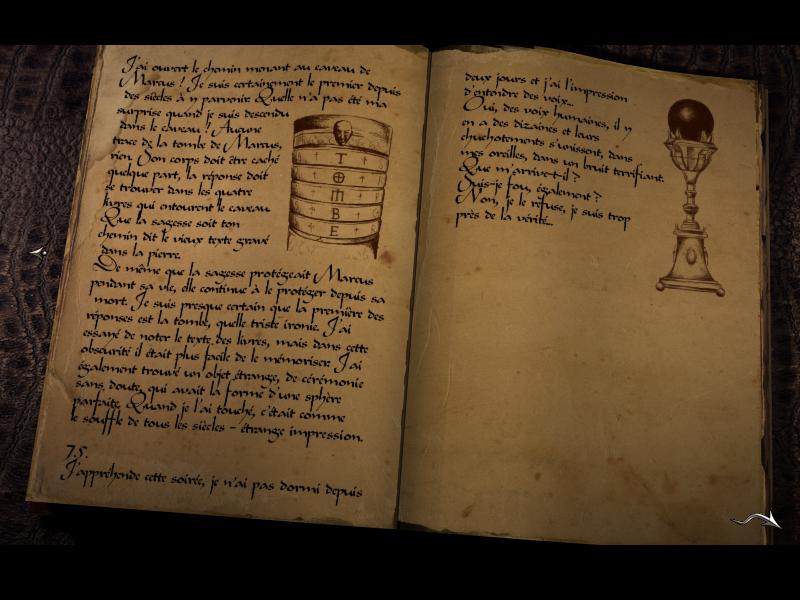 J'ai ouvert le chemin menant au caveau de
Marcus ! Je suis certainement le premier depuis
des siècles à y parvenir. Quelle n'a pas été ma
surprise quand je suis descendu
dans le caveau ! Aucune
trace de la tombe de Marcus,
rien. Son corps doit être caché
quelque part, la réponse doit
se trouver dans les quatre
livres qui entourent le caveau
Que la sagesse soit ton
chemin dit le vieux texte gravé
dans la pierre.
De même que la sagesse protégeait Marcus
pendant sa vie, elle continue à le protéger depuis sa
mort. Je suis presque certain que la première des
réponses est la tombe, quelle triste ironie. J'ai
essayé de noter le texte des livres, mais dans cette
obscurité il était plus facile de le mémoriser. J'ai
également trouvé un objet étrange, de cérémonie
sans doute, qui avait la forme d'une sphère
parfaite. Quand je l'ai touché, c'était comme
le souffle de tous les siècles - étrange impression.
7.5.
J'appréhende cette soirée, je n'ai pas dormi depuis
T
O
M
B
E
deux jours et j'ai l'impression
d'entendre des voix...
Oui, des voix humaines, il y
en a des dizaines et leurs
chuchotements s'unissent, dans
mes oreilles, dans un bruit terrifiant.
Que m'arrive-t-il ?
Suis-je fou, également ?
Non, je le refuse, je suis trop
près de la vérité...